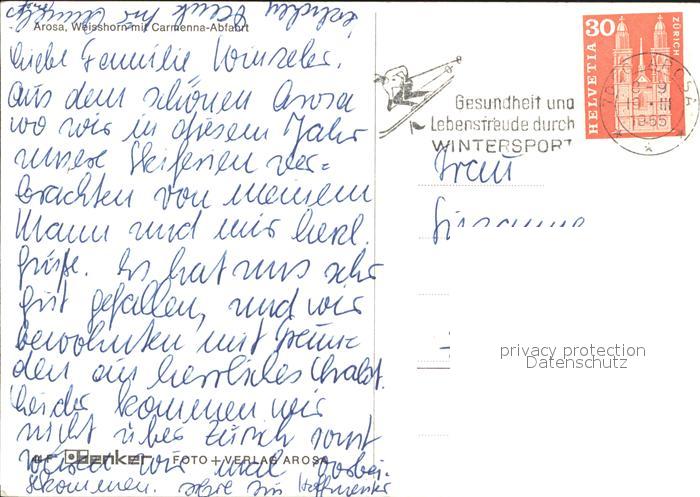 Arosa, Weisshorn mit Carmenna-Abfahrt
Liebe Familie
aus dem schönen Arosa
wo wir in diesem Jahr
unsere Skiferien ver=
brachten von meinem
Mann und mir herzl.
Grüsse. Es hat uns sehr
gut gefallen, und wir
bewohnten mit Freun=
den ein herrliches Chalet.
Leider kommen wir
nicht über Zürich sonst
wären wir mal vorbei-
gekommen.
FOTO + VERLAG AROSA
Gesundheit und
Lebensfreude durch
WINTERSPORT
30
HELVETIA
ZÜRICH
AROSA
1965
Frau
privacy protection
Datenschutz